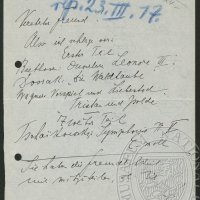 23. III. 17.
Verehrter Freund.
Also ich schlage vor:
Erster Teil
Beethoven Ouverture Leonore III.
Dvorak: Die Waldtaube
Wagner Vorspiel und Liebestod
Tristan und Isolde
Zweiter Teil
Tschaikowsky Symphonie N. V
E moll
Sie haben die
mir mitzuteilen ob